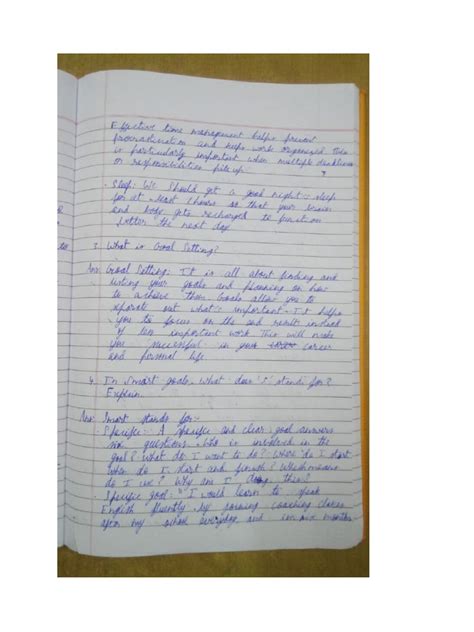 Effective time management helps prevent
procrastination and keeps work organized. This
is particularly important when multiple deadlines
or responsibilities pile up.
· Sleep: We should get a good night's sleep
for at least hours so that your brain
and body gets recharged to function
better the next day
3. What is Goal Setting?
Ans: Goal Setting: It is all about finding and
listing your goals and planning on how
to achieve them Goals allow you to
separate out what's important. It helps
you to focus on the end result instead
of less important work. This will make
you successful in your career
and personal life.
4. In Smart goals, what does 'S' stands for?
Explain.
Ans: Smart stands for:-
· Specific: A specific and clear goal answers
six questions. Who is involved in the
goal? What do I want to do? Where do I start
when do I start and finish? Which means
do I use? Why am I doing this?
· Specific goal: "I would learn to speak
English fluently by joining coaching classes
after my school everyday and in six months